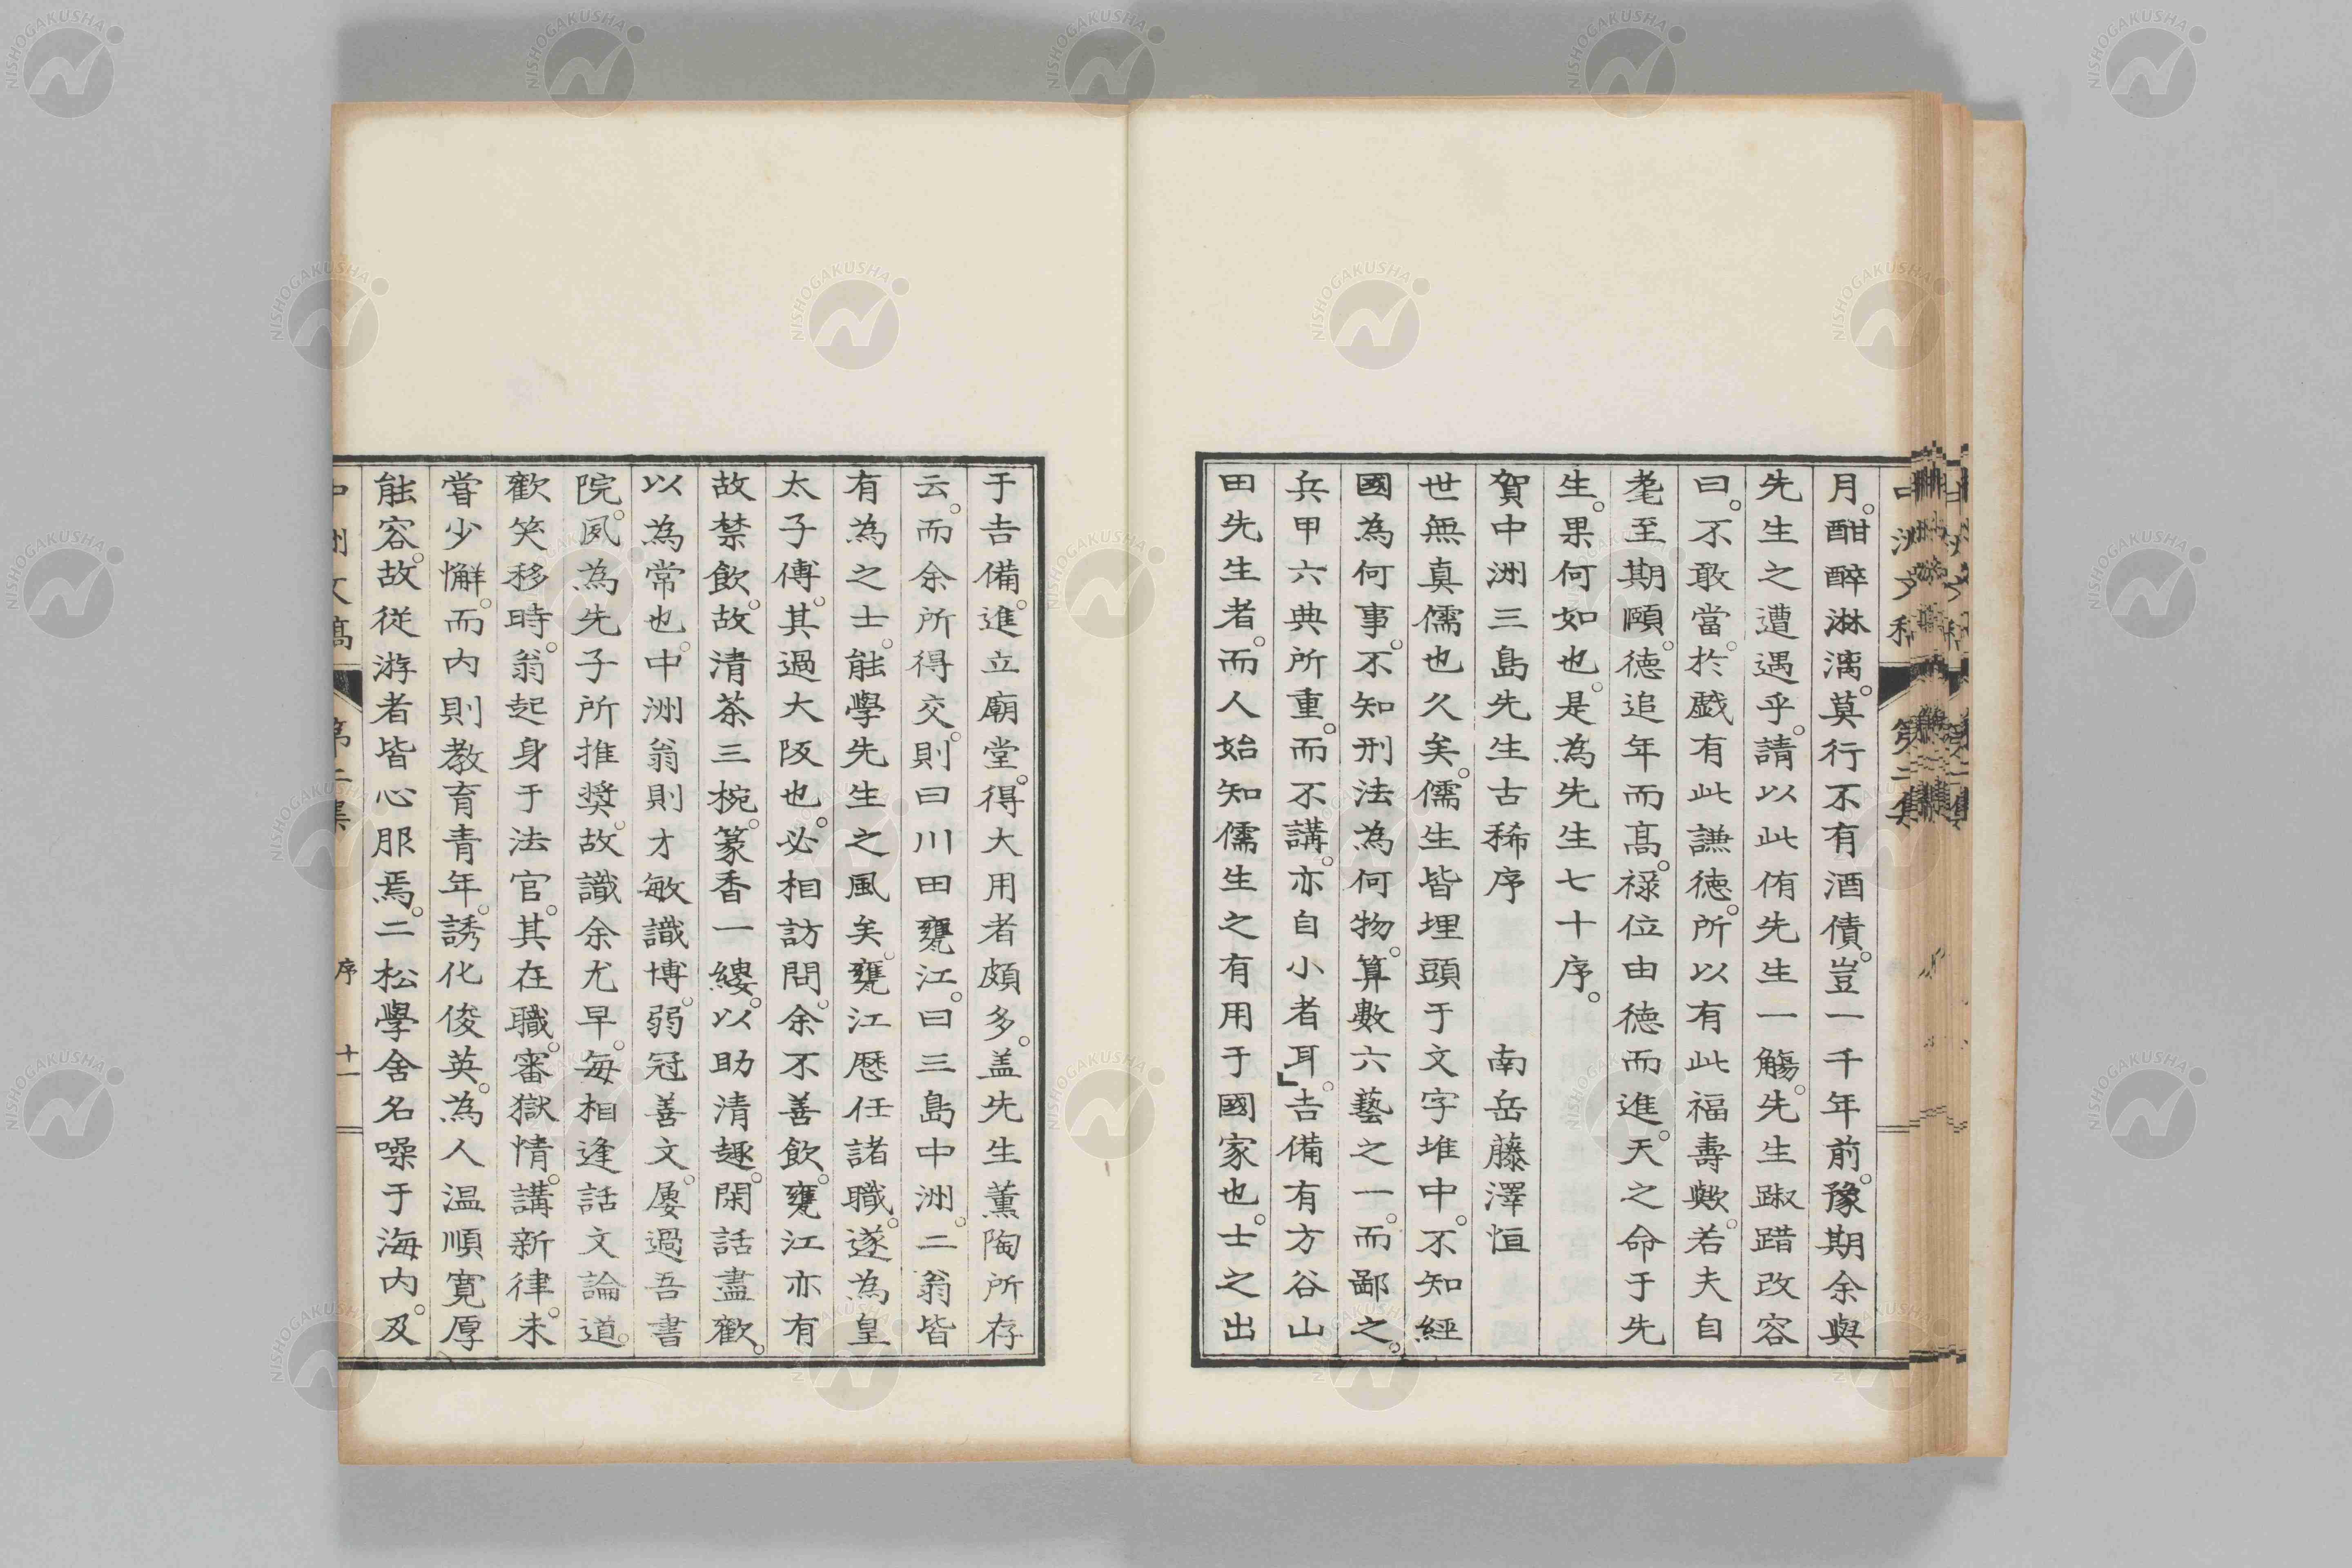 月。酣醉淋漓。莫行不有酒債。豈一千年前。豫期余與
先生之遭遇乎。請以此侑先生一觴。先生踧踖改容
曰。不敢當。於戲有此謙德。所以有此福壽歟。若夫自
耄至期頤。德追年而高。祿位由德而進。天之命于先
生。果何如也。是為先生七十序。
賀中洲三島先生古稀序 南岳藤澤恒
世無真儒也久矣。儒生皆埋頭于文字堆中。不知經
國為何事。不知刑法為何物。算數六藝之一。而鄙之。
兵甲六典所重。而不講。亦自小者耳。」吉備有方谷山
田先生者。而人始知儒生之有用于國家也。士之出
于吉備。進立廟堂。得大用者頗多。盖先生薰陶所存
云。而余所得交。則曰川田甕江。曰三島中洲。二翁皆
有為之士。能學先生之風矣。甕江歷任諸職。遂為皇
太子傅。其過大阪也。必相訪問。余不善飲。甕江亦有
故禁飲。故清茶三椀。篆香一縷。以助清趣。閑話盡歡。
以為常也。中洲翁則才敏識博。弱冠善文。屢過吾書
院。夙為先子所推奬。故識余尤早。每相逢話文論道。
歡笑移時。翁起身于法官。其在職。審獄情。講新律。未
嘗少懈。而內則教育青年。誘化俊英。為人温順寬厚
能容。故從游者皆心服焉。二松學舍名噪于海內。及
中洲文稿 第二集 序 十一
NISHOGAKUSHA